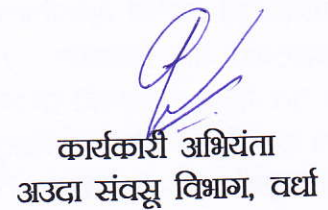 कार्यकारी अभियंता
अउदा संवसू विभाग, वर्धा